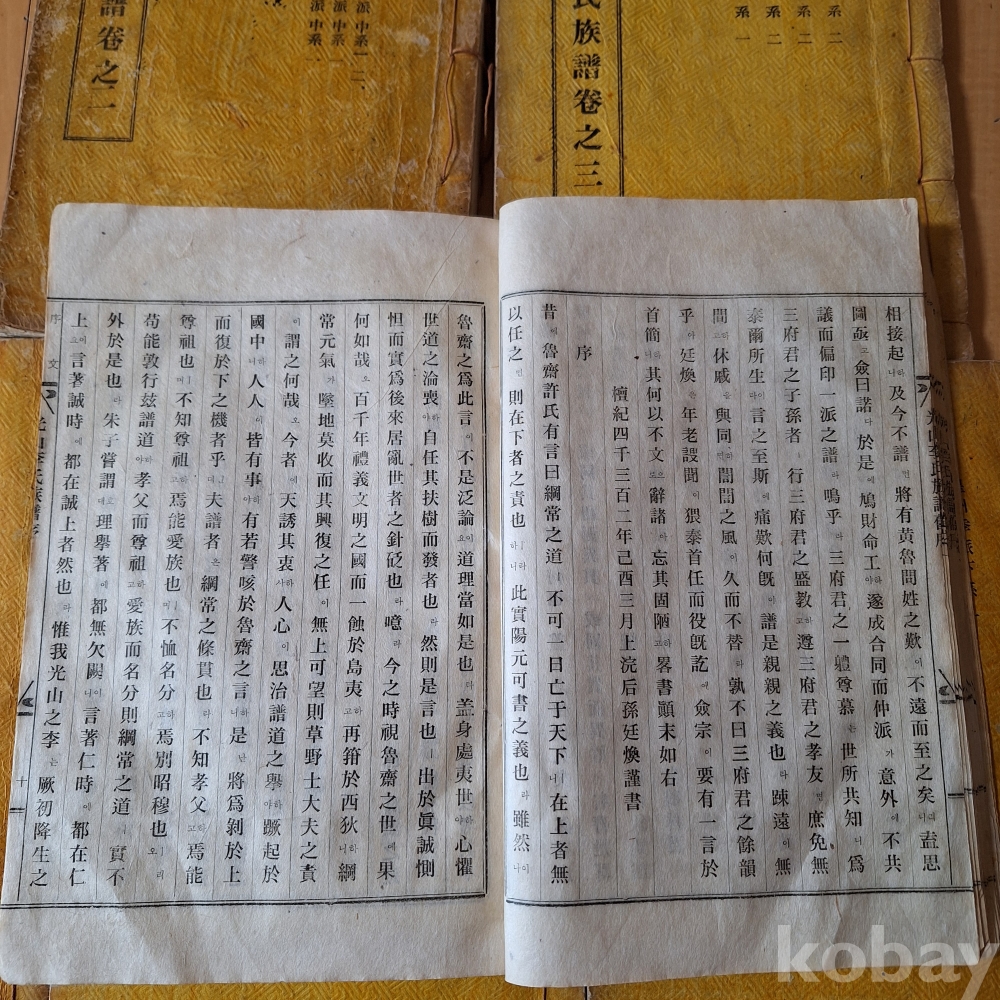 譜卷之二
派中系一二
派中系一
派中系一
氏族譜卷之三
系二
系二
系二
系一
相接起나니及今不譜면將有黃魯問姓之歎이不遠而至之矣니라盍思
圖哉로僉曰諾다於是에鳩財命工하야遂成合同而仲派가意外에不共
議而偏印一派之譜라嗚乎라三府君之一軆尊慕는世所共知니爲
三府君之子孫者ㅣ行三府君之盛敎하고遵三府君之孝友면庶免無
泰爾所生이라言之至斯에痛歎何旣리오譜是親親之義也라踈遠이無
間고休戚을與同하면誾誾之風이久而不替하리孰不曰三府君之餘韻
乎아廷煥은年老謏聞으로猥泰首任而役旣訖에僉宗이要有一言於
首簡하니其何以不文으로辭諸아忘其固陋하고畧書顚末如右
檀紀四千三百二年己酉三月上浣后孫廷煥謹書
序
昔에魯齋許氏有言曰綱常之道ㅣ不可一日亡于天下니在上者無
以任之면則在下者之責也라하니此實陽元可書之義也라雖然이나
魯齋之爲此言이不是泛論이요道理當如是也라盖身處夷世하야心懼
世道之淪喪하야自任其扶樹而發者也라然則是言也ㅣ出於眞誠惻
怛而實爲後來居亂世者之針砭也라噫라今之時視魯齋之世에果
何如哉오百千年禮義文明之國而一蝕於島夷하고再籍於西狄하니綱
常元氣가墜地莫收而其興復之任이無上可望則草野士大夫之責
이謂之何哉오今者에天誘其衷하사人心이思治譜道之擧하야蹶起於
國中하니人人이皆有事하야有若警咳於魯齋之言하니是난將爲剝於上
而復於下之機者乎ㄴ뎌夫譜者은綱常之條貫也라不知孝父하고焉能
尊祖也ㅣ며不知尊祖하고焉能愛族也ㅣ며不恤名分하고焉別昭穆也ㅣ리오
苟能敦行玆譜道하야孝父而尊祖하고愛族而名分則綱常之道ㅣ實不
外於是也라朱子嘗謂하되理擧著에都無欠闕이니言著仁時에都在仁
上이요言著誠時에都在誠上者然也라惟我光山之李는厥初降生之
序文
光山李氏族譜序
十
kobay